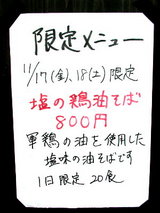 限定メニュー
11/17(金)、18(土)限定
塩の鶏油そば
800円
軍鶏の油を使用した
塩味の油そばです
1日限定 20食